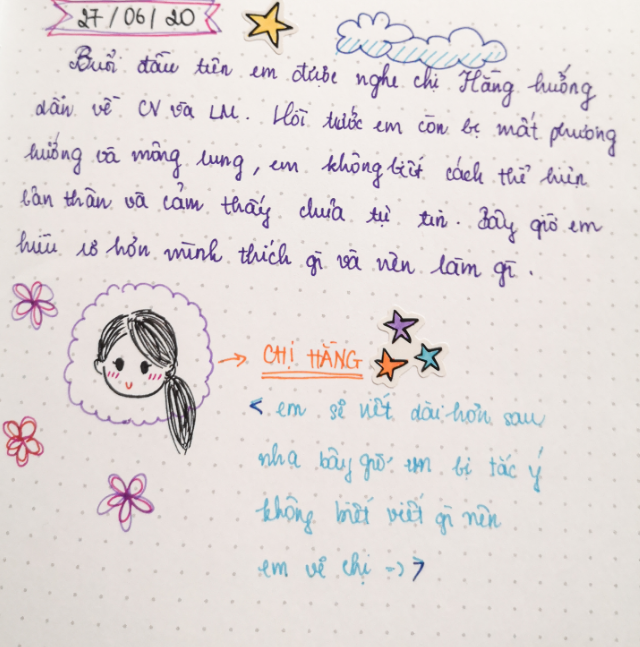 27/06/20
Buổi đầu tiên em được nghe chị Hằng hướng
dẫn về CV và LM. Hồi trước em còn bị mất phương
hướng và mông lung, em không biết cách thể hiện
bản thân và cảm thấy chưa tự tin. Bây giờ em
hiểu rõ hơn mình thích gì và nên làm gì.
→ CHỊ HẰNG
< em sẽ viết dài hơn sau
nha bây giờ em bị tắc ý
không biết viết gì nên
em vẽ chị :>>